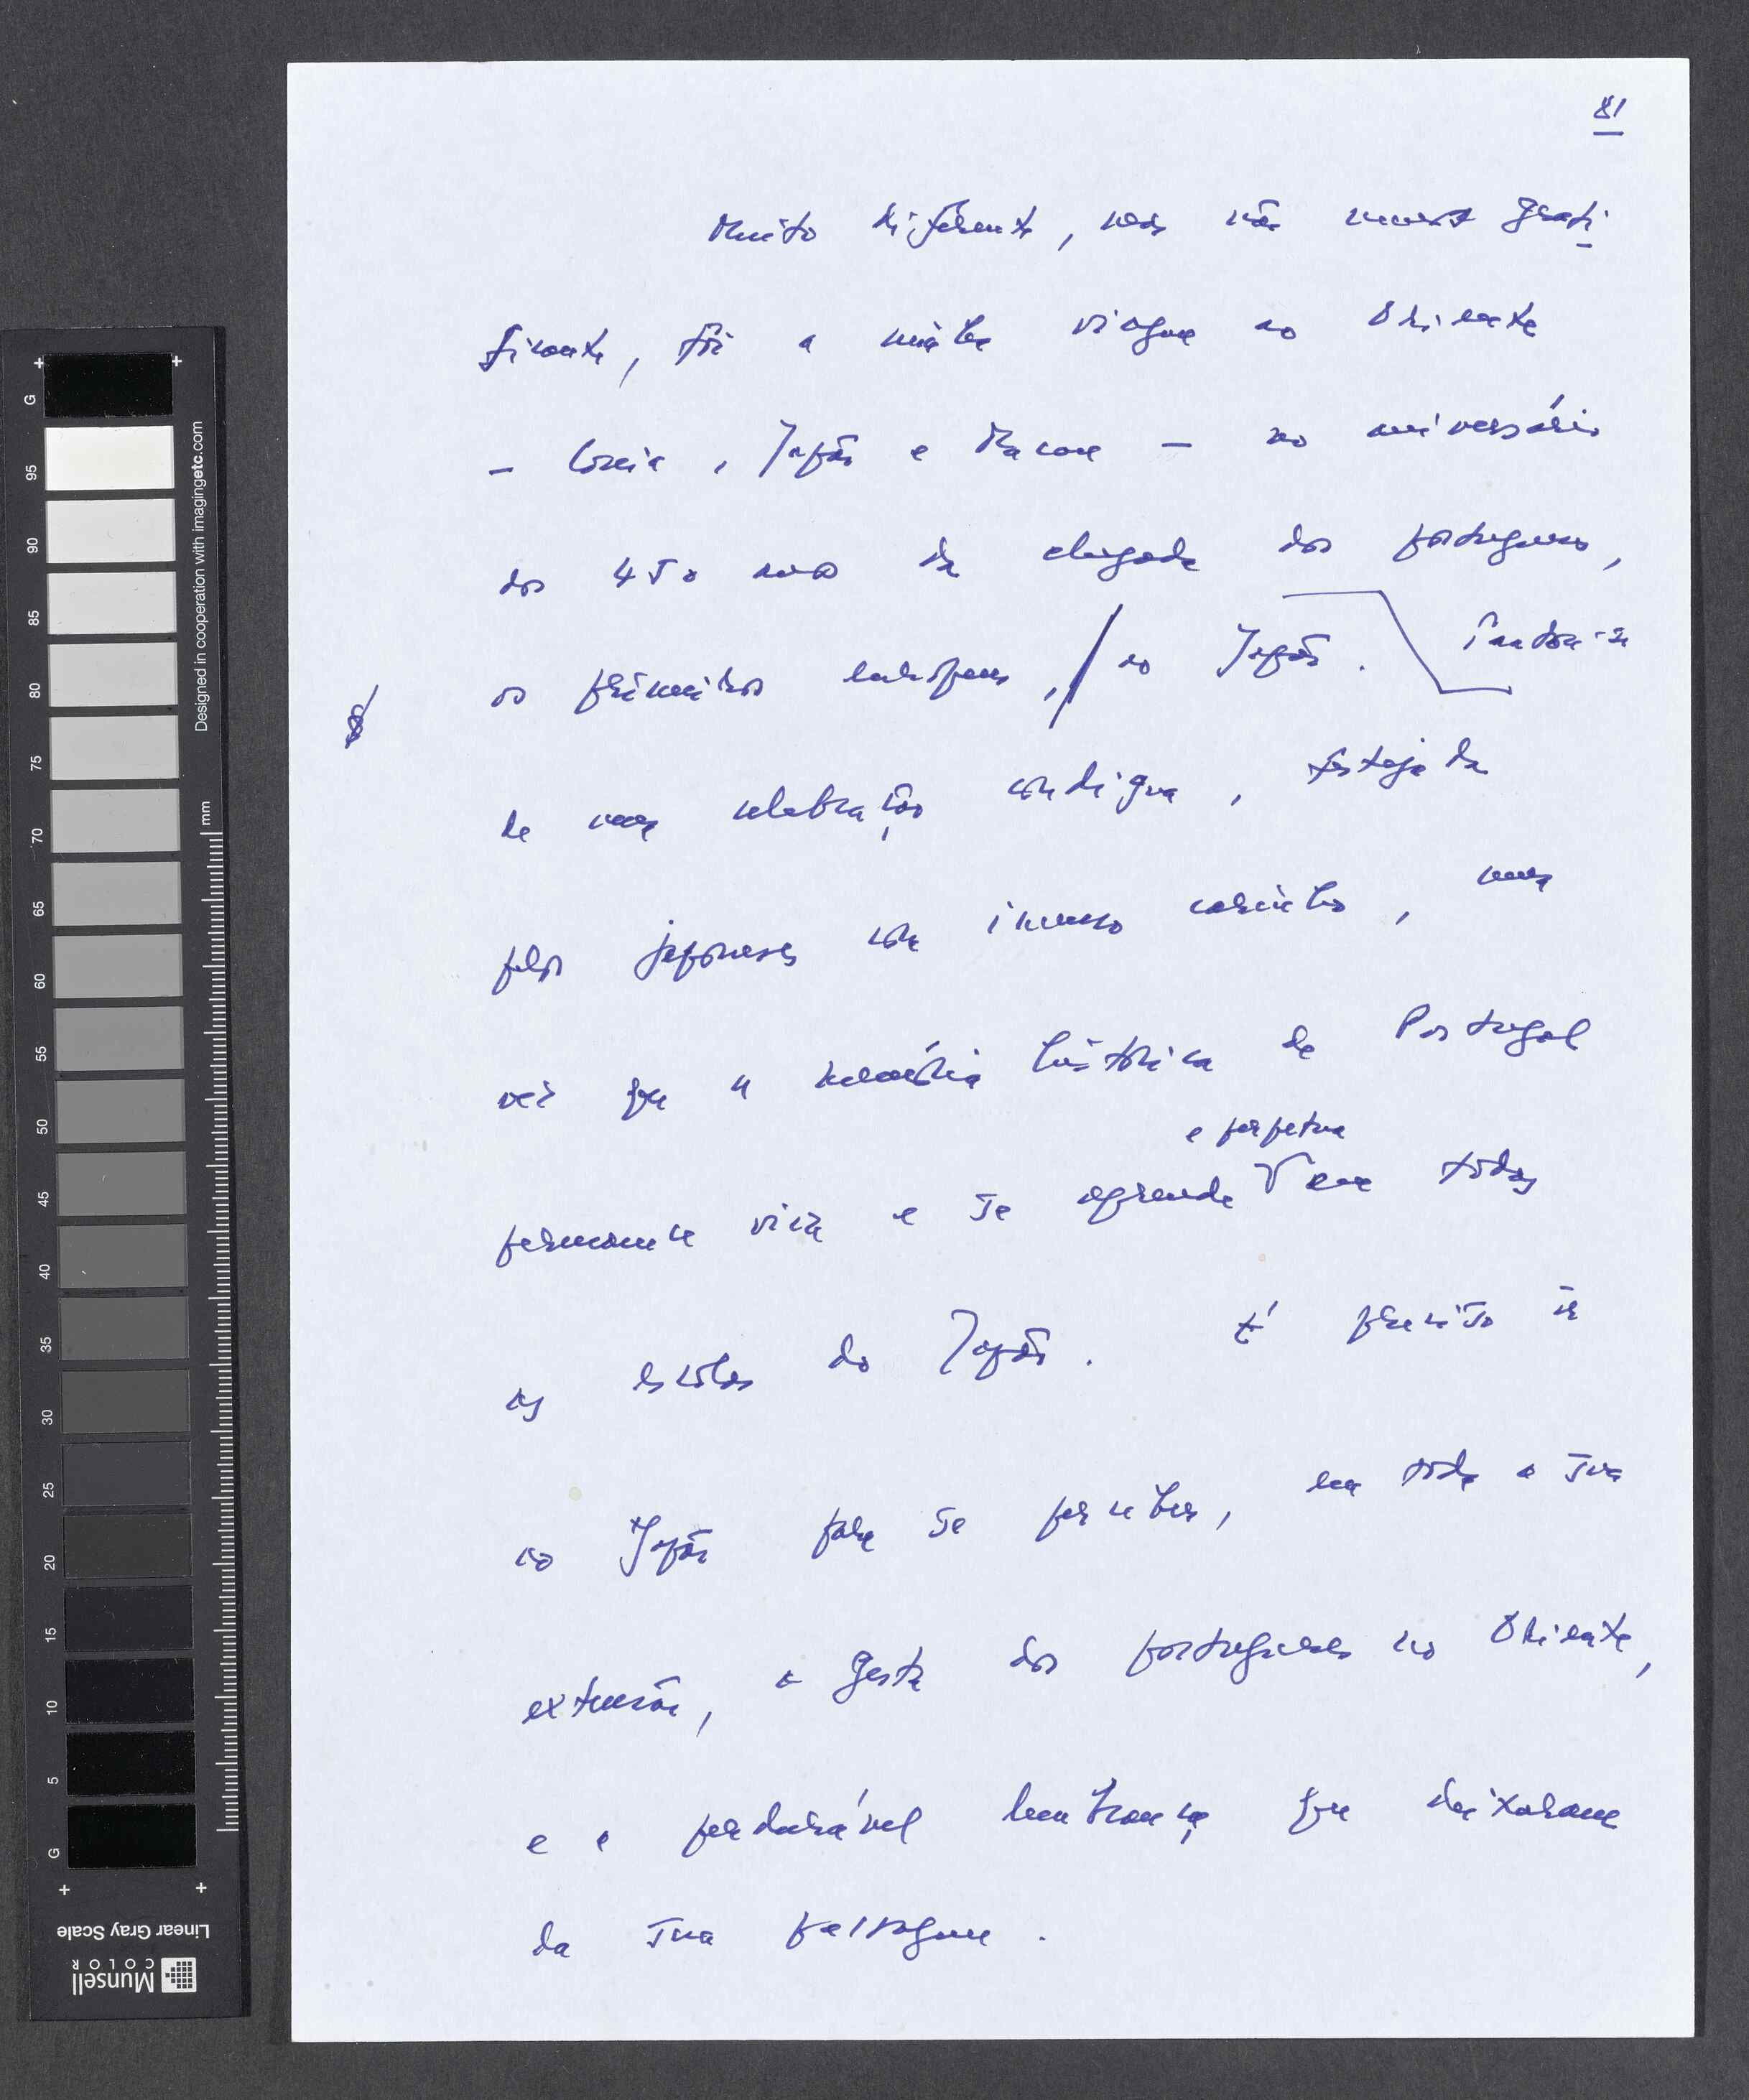 81
Muito diferente, mas não menos grati-
ficante, foi a minha viagem ao Oriente
- Coreia, Japão e Macau - no aniversário
dos 450 anos da chegada dos portugueses,
os primeiros europeus, / ao Japão. Tratou-se
de uma celebração condigna, festejada
pelos japoneses com imenso carinho, uma
vez que a memória histórica de Portugal
e perpetua
permanece viva e se aprende em todas
as escolas do Japão. É preciso ir
ao Japão para se perceber, em toda a sua
extensão, a gesta dos portugueses no Oriente,
e a perdurável lembrança que deixaram
da sua passagem.
G
95
90
85
80
75
70
65
60
55
50
45
40
35
30
25
20
15
10
5
G
mm
Designed in cooperation with imagingetc.com
Linear Gray Scale
Munsell
COLOR